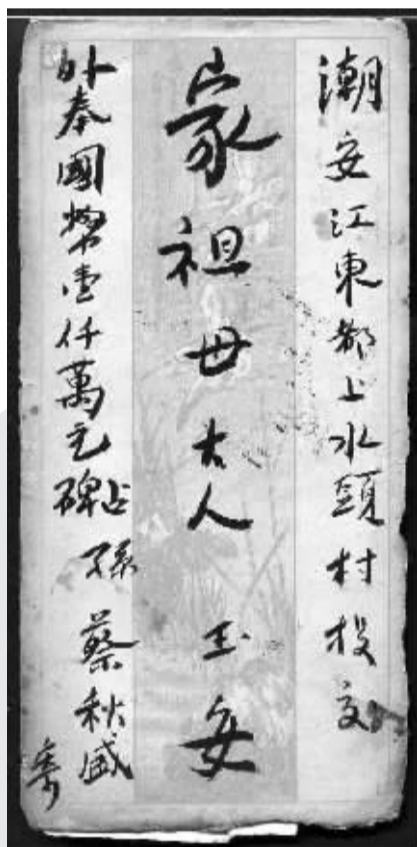 潮安江東都上水頭村投交
家祖母大人 玉安
外奉國幣壹仟萬元 孫 蔡秋盛寄